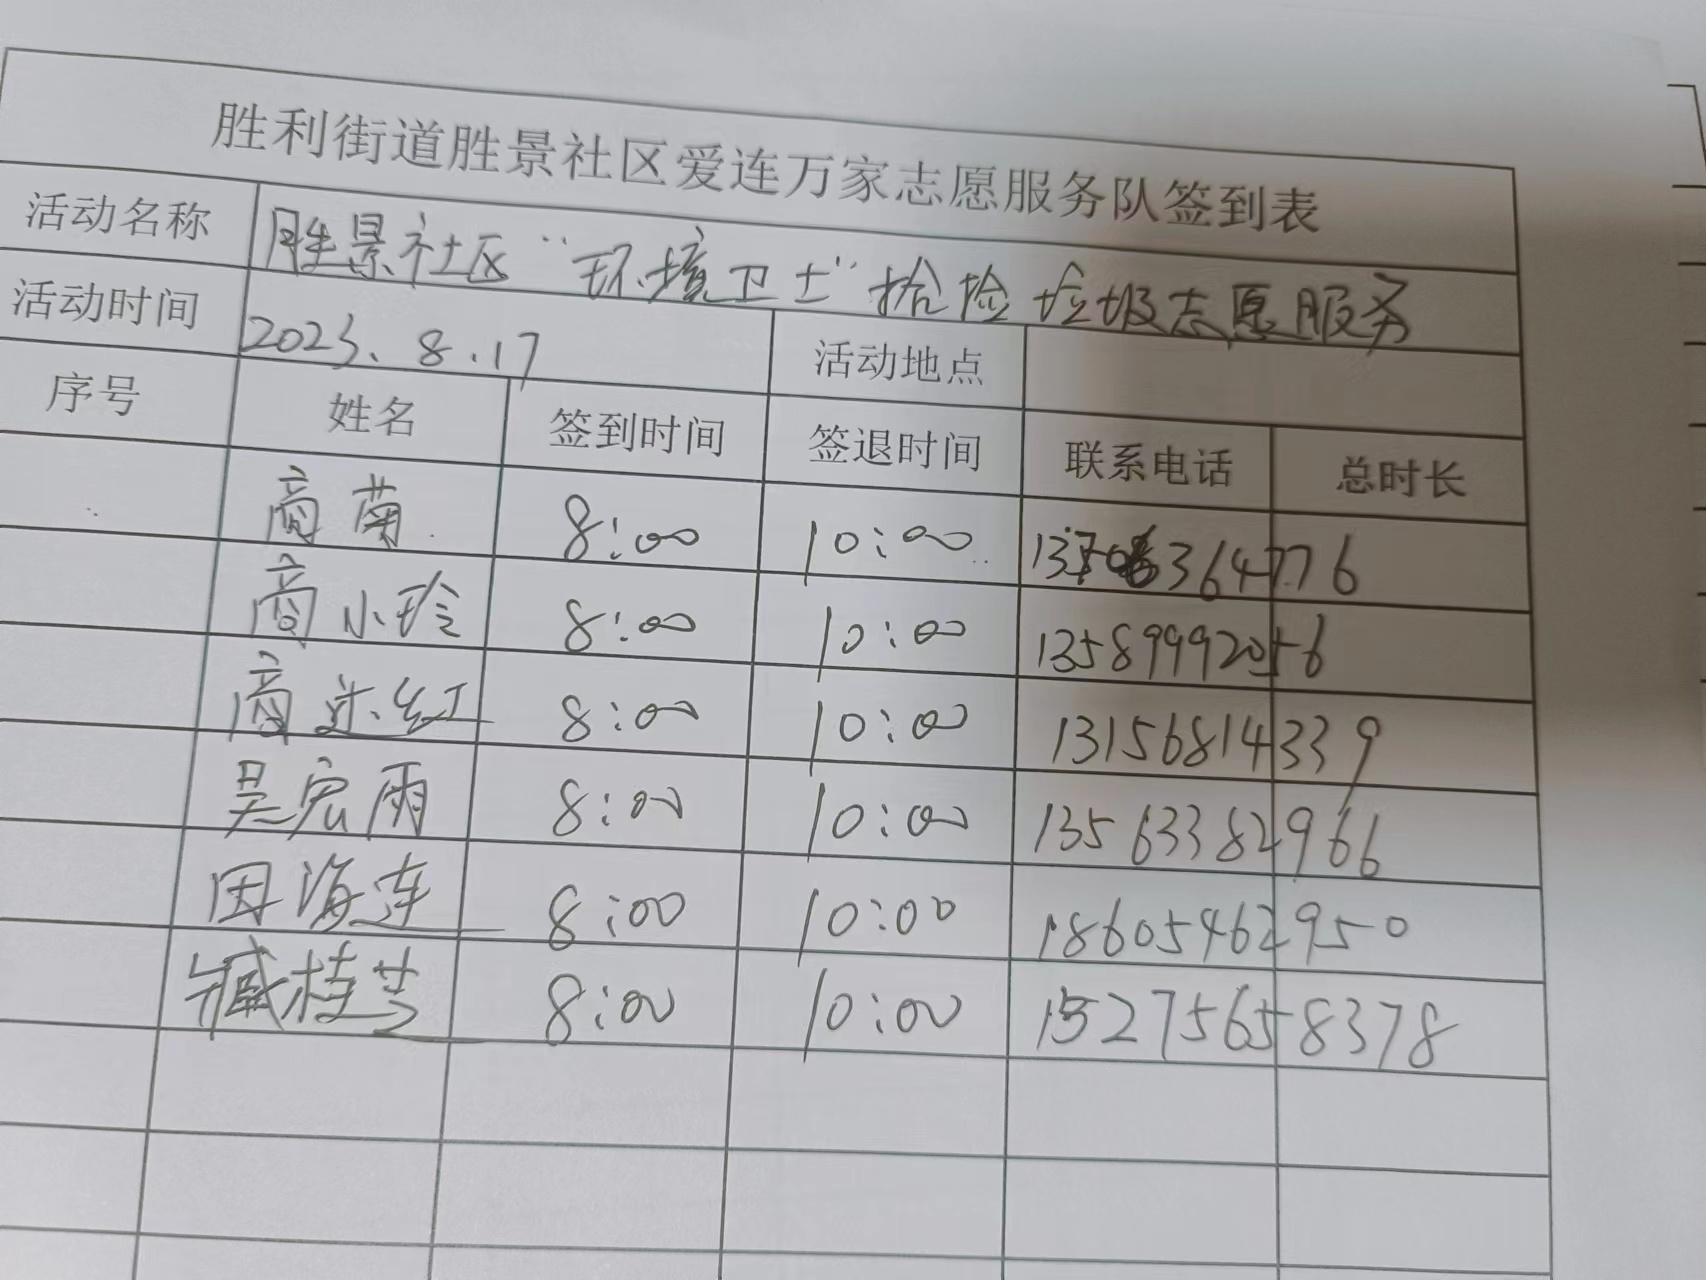 胜利街道胜景社区爱连万家志愿服务队签到表
活动名称 胜景社区“环境卫士”拾捡垃圾志愿服务
活动时间 2023.8.17 活动地点
序号 姓名 签到时间 签退时间 联系电话 总时长
商菊 8:00 10:00 364776
商小玲 8:00 10:00 13589992056
商 红 8:00 10:00 13156814339
吴宏雨 8:00 10:00 13563382966
田海连 8:00 10:00 18605462950
臧桂芝 8:00 10:00 15275658378